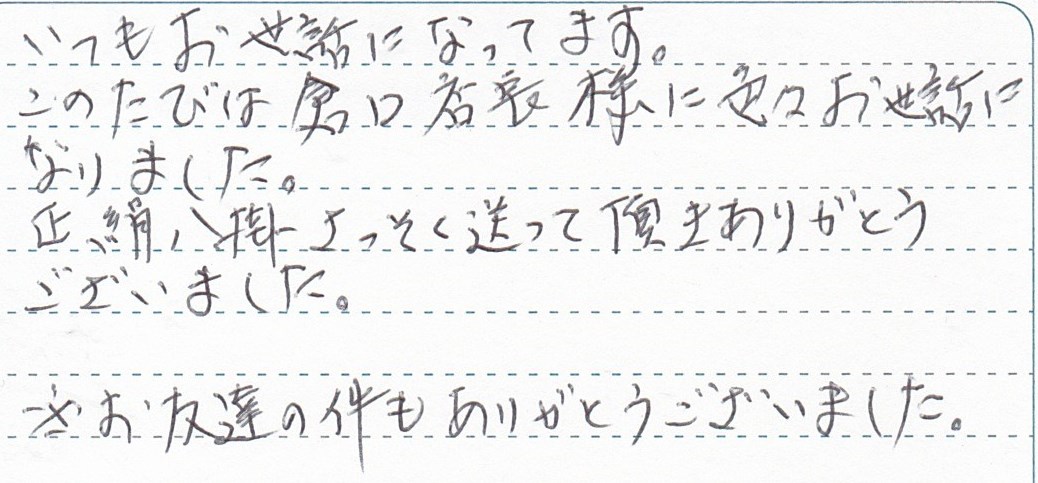 いつもお世話になってます。
このたびは倉口店長様に色々お世話に
なりました。
正絹八掛さっそく送って頂きありがとう
ございました。
お友達の件もありがとうございました。